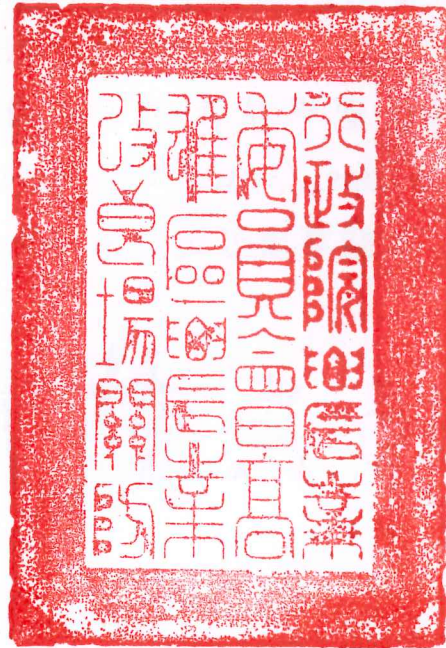 行政院農業
委員會高
雄區農業
改良場關防